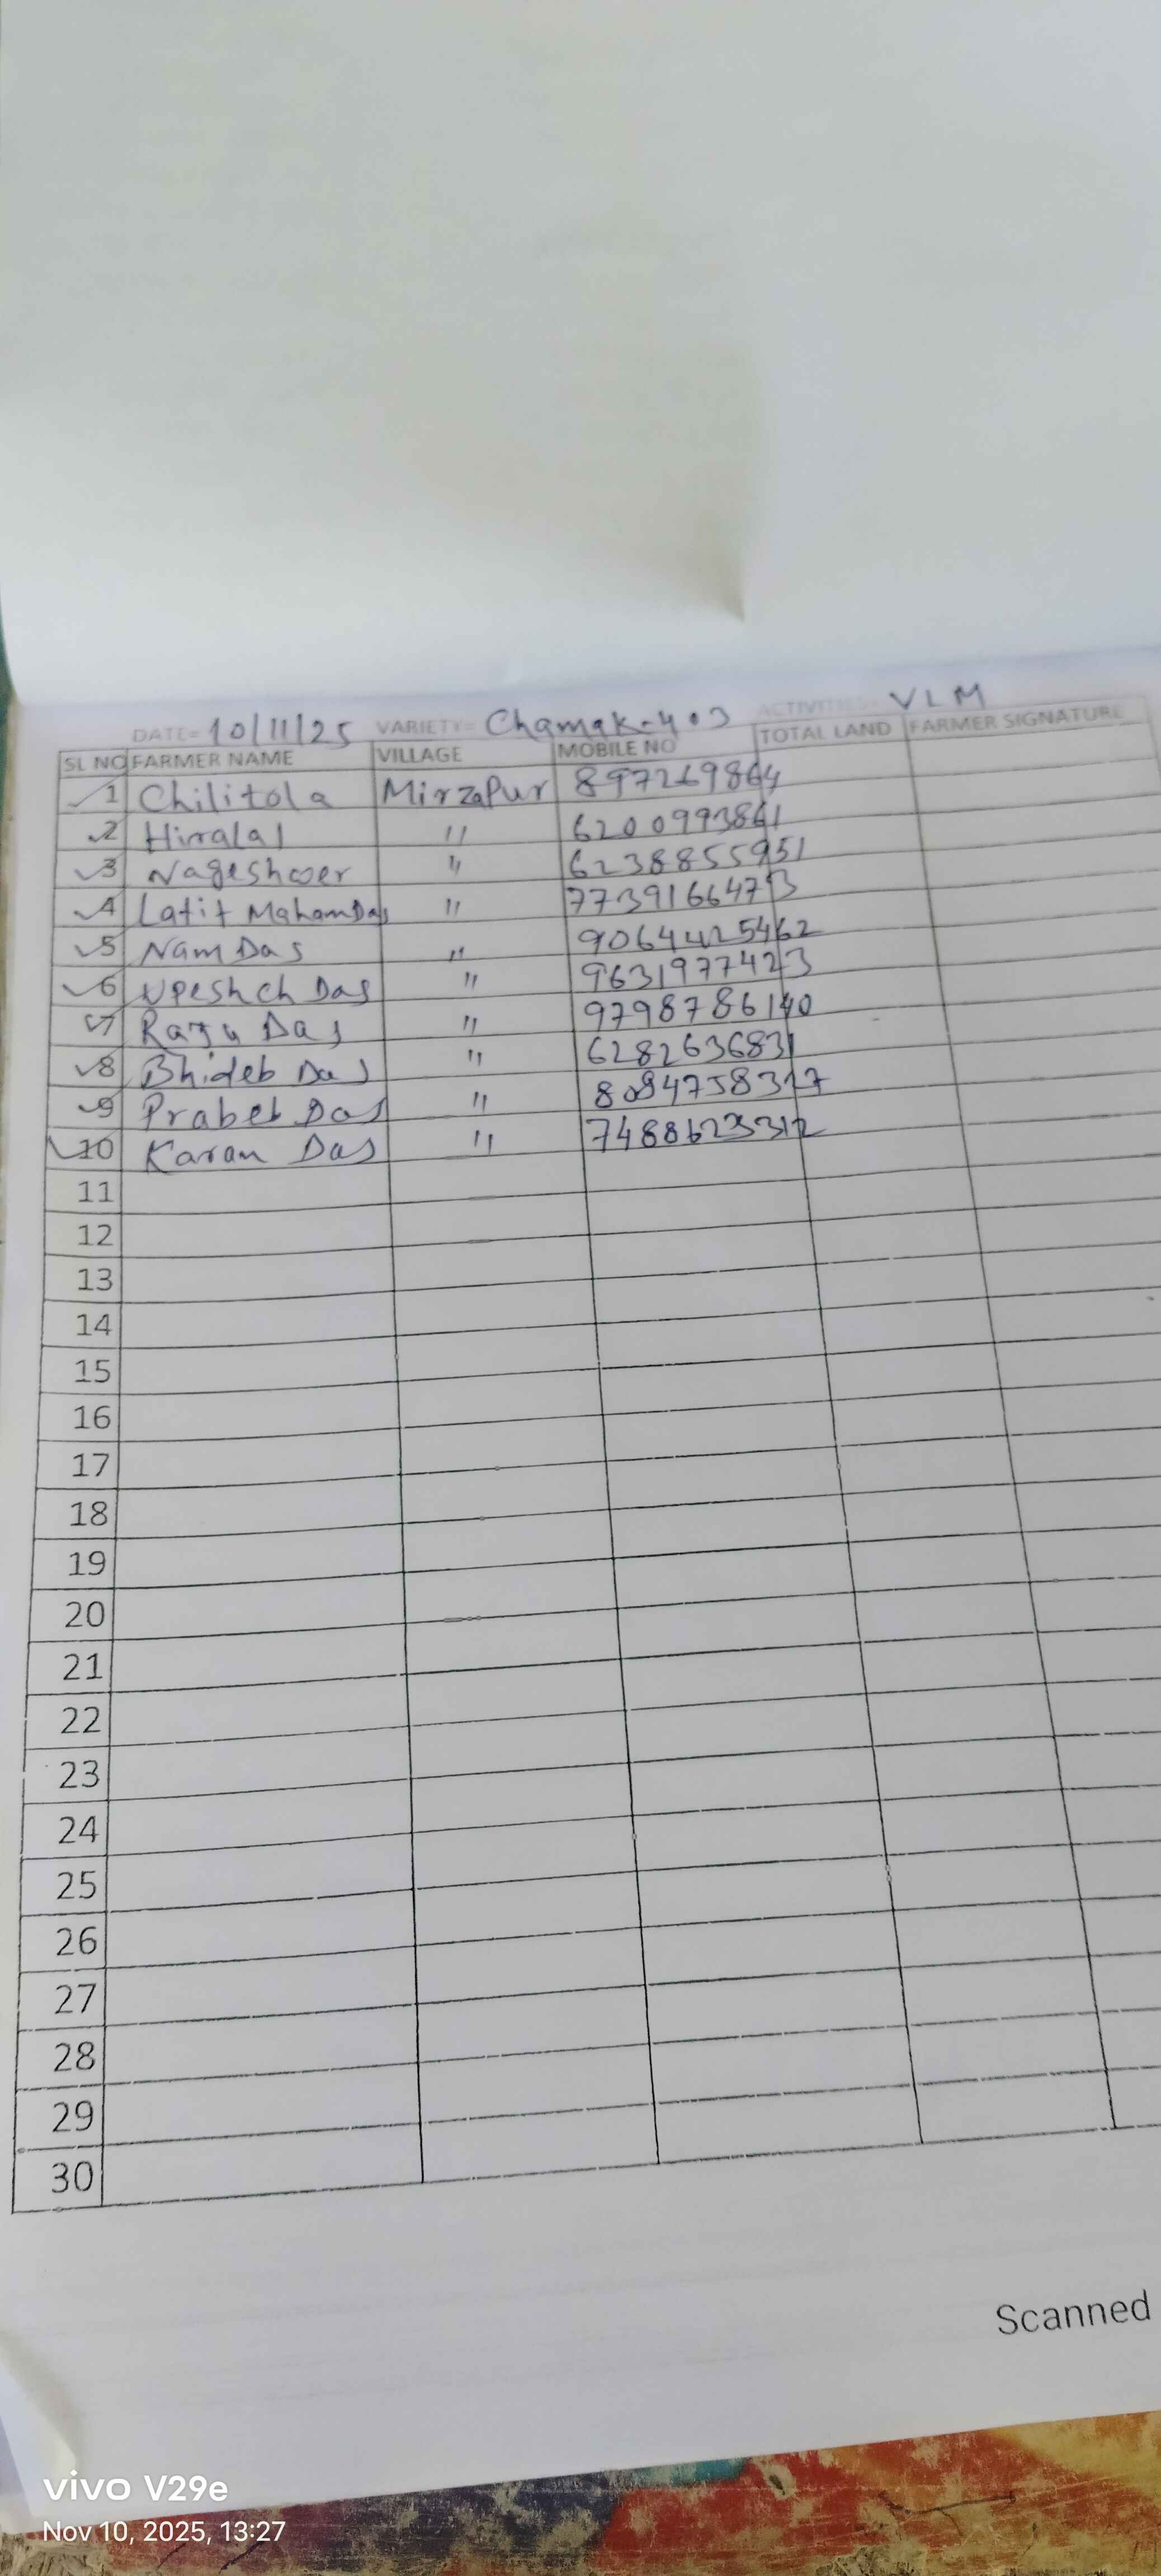 DATE= 10/11/25 VARIETY= Chamak-403 ACTIVITIES= VLM
SL NO FARMER NAME VILLAGE MOBILE NO TOTAL LAND FARMER SIGNATURE
1 Chilitola Mirzapur 897269864
2 Hiralal " 6200993861
3 Nageshwer " 6238855951
4 Latit MahamDas " 7739166473
5 Nam Das " 9064425462
6 Upeshch Das " 9631977423
7 Raju Das " 9798786140
8 Bhideb Das " 6282636831
9 Prabeb Das " 8084758317
10 Karan Das " 7488623312
11
12
13
14
15
16
17
18
19
20
21
22
23
24
25
26
27
28
29
30
Scanned
vivo V29e
Nov 10, 2025, 13:27